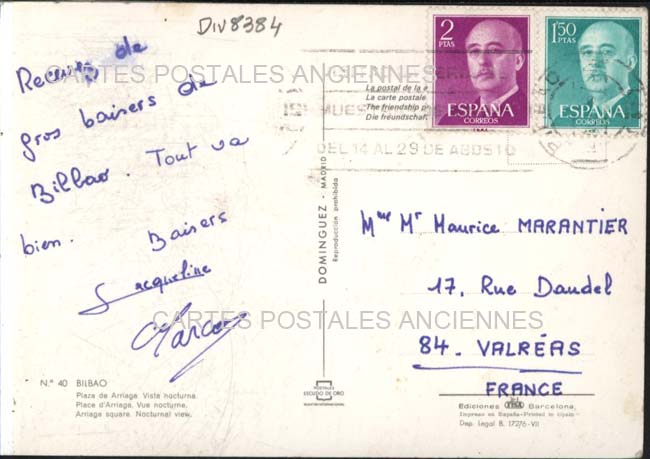 DIV8384
Recevez de
gros baisers de
Bilbao. Tout va
bien. Baisers
Jacqueline
Marc
CARTES POSTALES ANCIENNES
2
PTAS
ESPAÑA
CORREOS
1'50
PTAS
ESPAÑA
CORREOS
La postal de la
La carte postale
The friendship
Die freundschaf
DEL 14 AL 29 DE AGOSTO
DOMINGUEZ - MADRID
Reproducción prohibida
Mme Mr Maurice MARANTIER
17, Rue Daudel
84. VALRÉAS
FRANCE
CARTES POSTALES ANCIENNES
N.º 40 BILBAO
Plaza de Arriaga. Vista nocturna.
Place d'Arriaga. Vue nocturne.
Arriaga square. Nocturnal view.
POSTALES
ESCUDO DE ORO
Ediciones Barcelona.
Impreso en España-Printed in Spain
Dep. Legal B. 17276-VII